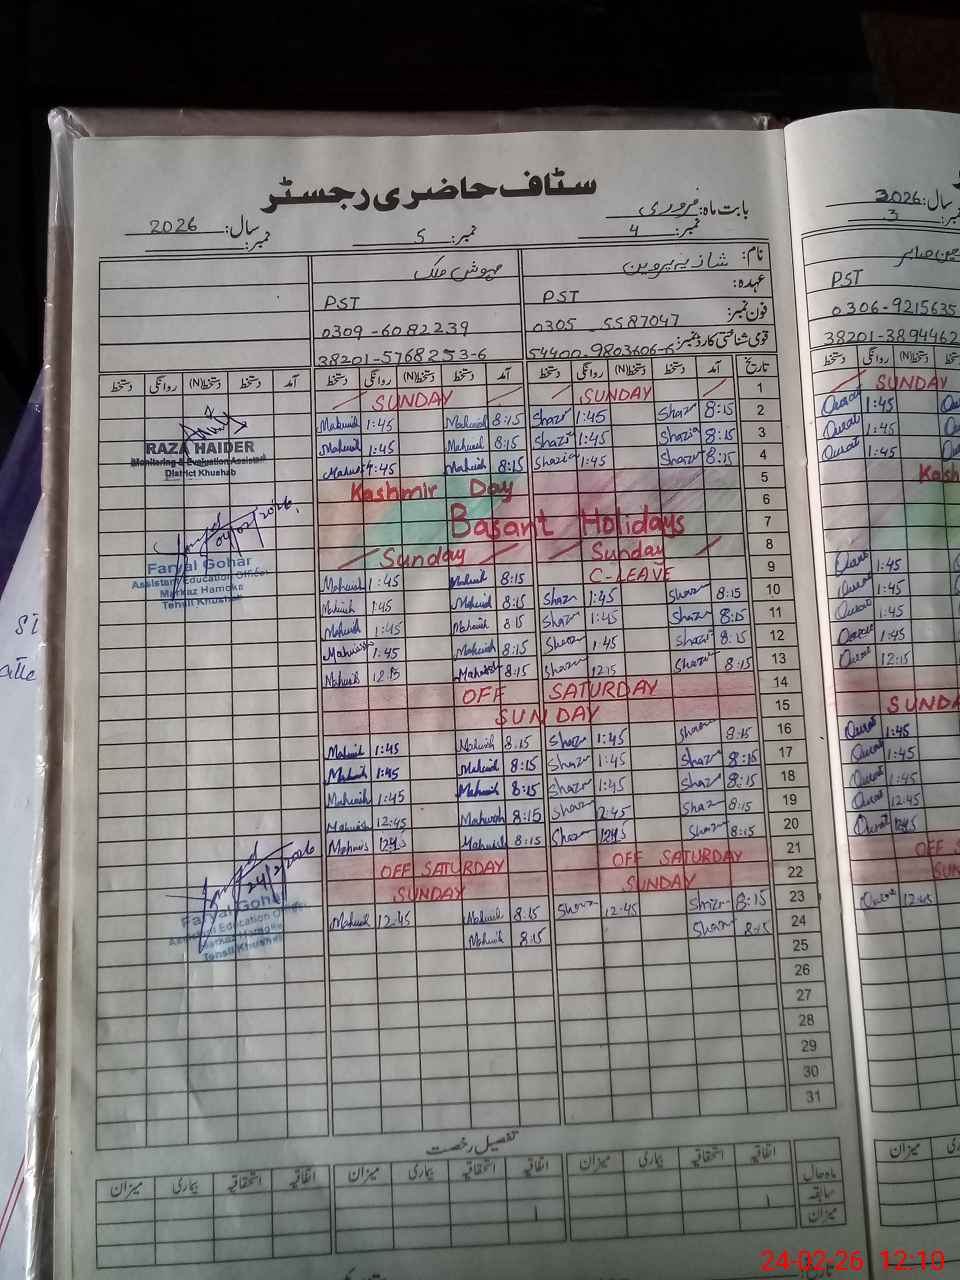 سٹاف حاضری رجسٹر
بابت ماہ: فروری
سال: 2026
نمبر: 4
نمبر: 5
نمبر:
نام: شازیہ پروین
مہوش ملک
عہدہ: PST
PST
فون نمبر: 0305-5587047
0309-6082239
قومی شناختی کارڈ نمبر: 54400-9803606-6
38201-5768253-6
تاریخ آمد دستخط دستخط(N) روانگی دستخط آمد دستخط دستخط(N) روانگی دستخط آمد دستخط دستخط(N) روانگی دستخط
SUNDAY SUNDAY 1
Mahwish 1:45 Mahwish 8:15 Shazia 1:45 Shazia 8:15 2
Mahwish 1:45 Mahwish 8:15 Shazia 1:45 Shazia 8:15 3
Mahwish 1:45 Mahwish 8:15 Shazia 1:45 Shazia 8:15 4
Kashmir Day 5
6
Basant Holidays 7
Sunday Sunday 8
Mahwish 1:45 Mahwish 8:15 C-LEAVE 9
Mahwish 1:45 Mahwish 8:15 Shazia 1:45 Shazia 8:15 10
Mahwish 1:45 Mahwish 8:15 Shazia 1:45 Shazia 8:15 11
Mahwish 1:45 Mahwish 8:15 Shazia 1:45 Shazia 8:15 12
Mahwish 12:15 Mahwish 8:15 Shazia 12:15 Shazia 8:15 13
OFF SATURDAY 14
SUNDAY 15
Mahwish 1:45 Mahwish 8:15 Shazia 1:45 Shazia 8:15 16
Mahwish 1:45 Mahwish 8:15 Shazia 1:45 Shazia 8:15 17
Mahwish 1:45 Mahwish 8:15 Shazia 1:45 Shazia 8:15 18
Mahwish 12:45 Mahwish 8:15 Shazia 8:15 19
Mahwish 1245 Mahwish 8:15 Shazia 1245 Shazia 8:15 20
OFF SATURDAY OFF SATURDAY 21
SUNDAY SUNDAY 22
Mahwish 12:45 Mahwish 8:15 Shazia 12:45 Shazia 8:15 23
Mahwish 8:15 Shazia 8:15 24
25
26
27
28
29
30
31
RAZA HAIDER
Monitoring & Evaluation Assistant
District Khushab
04/02/2026
Faryal Gohar
Assistant Education Officer
Markaz Hamoka
Tehsil Khushab
24/2/2026
Faryal Gohar
Assistant Education Officer
Markaz Hamoka
Tehsil Khushab
تفصیل رخصت
اتفاقیہ استحقاقیہ بیماری میزان اتفاقیہ استحقاقیہ بیماری میزان اتفاقیہ استحقاقیہ بیماری میزان
ماہ حال
سابقہ 1 1
میزان
سال: 2026
3
PST
0306-9215635
38201-3894462
SUNDAY
Qurat 1:45
Qurat 1:45
Qurat 1:45
Qurat 1:45
Qurat 1:45
Qurat 1:45
Qurat 1:45
Qurat 12:15
Qurat 1:45
Qurat 1:45
Qurat 1:45
Qurat 12:45
Qurat 1245
Qurat 12:45
میزان
24-02-26 12:10